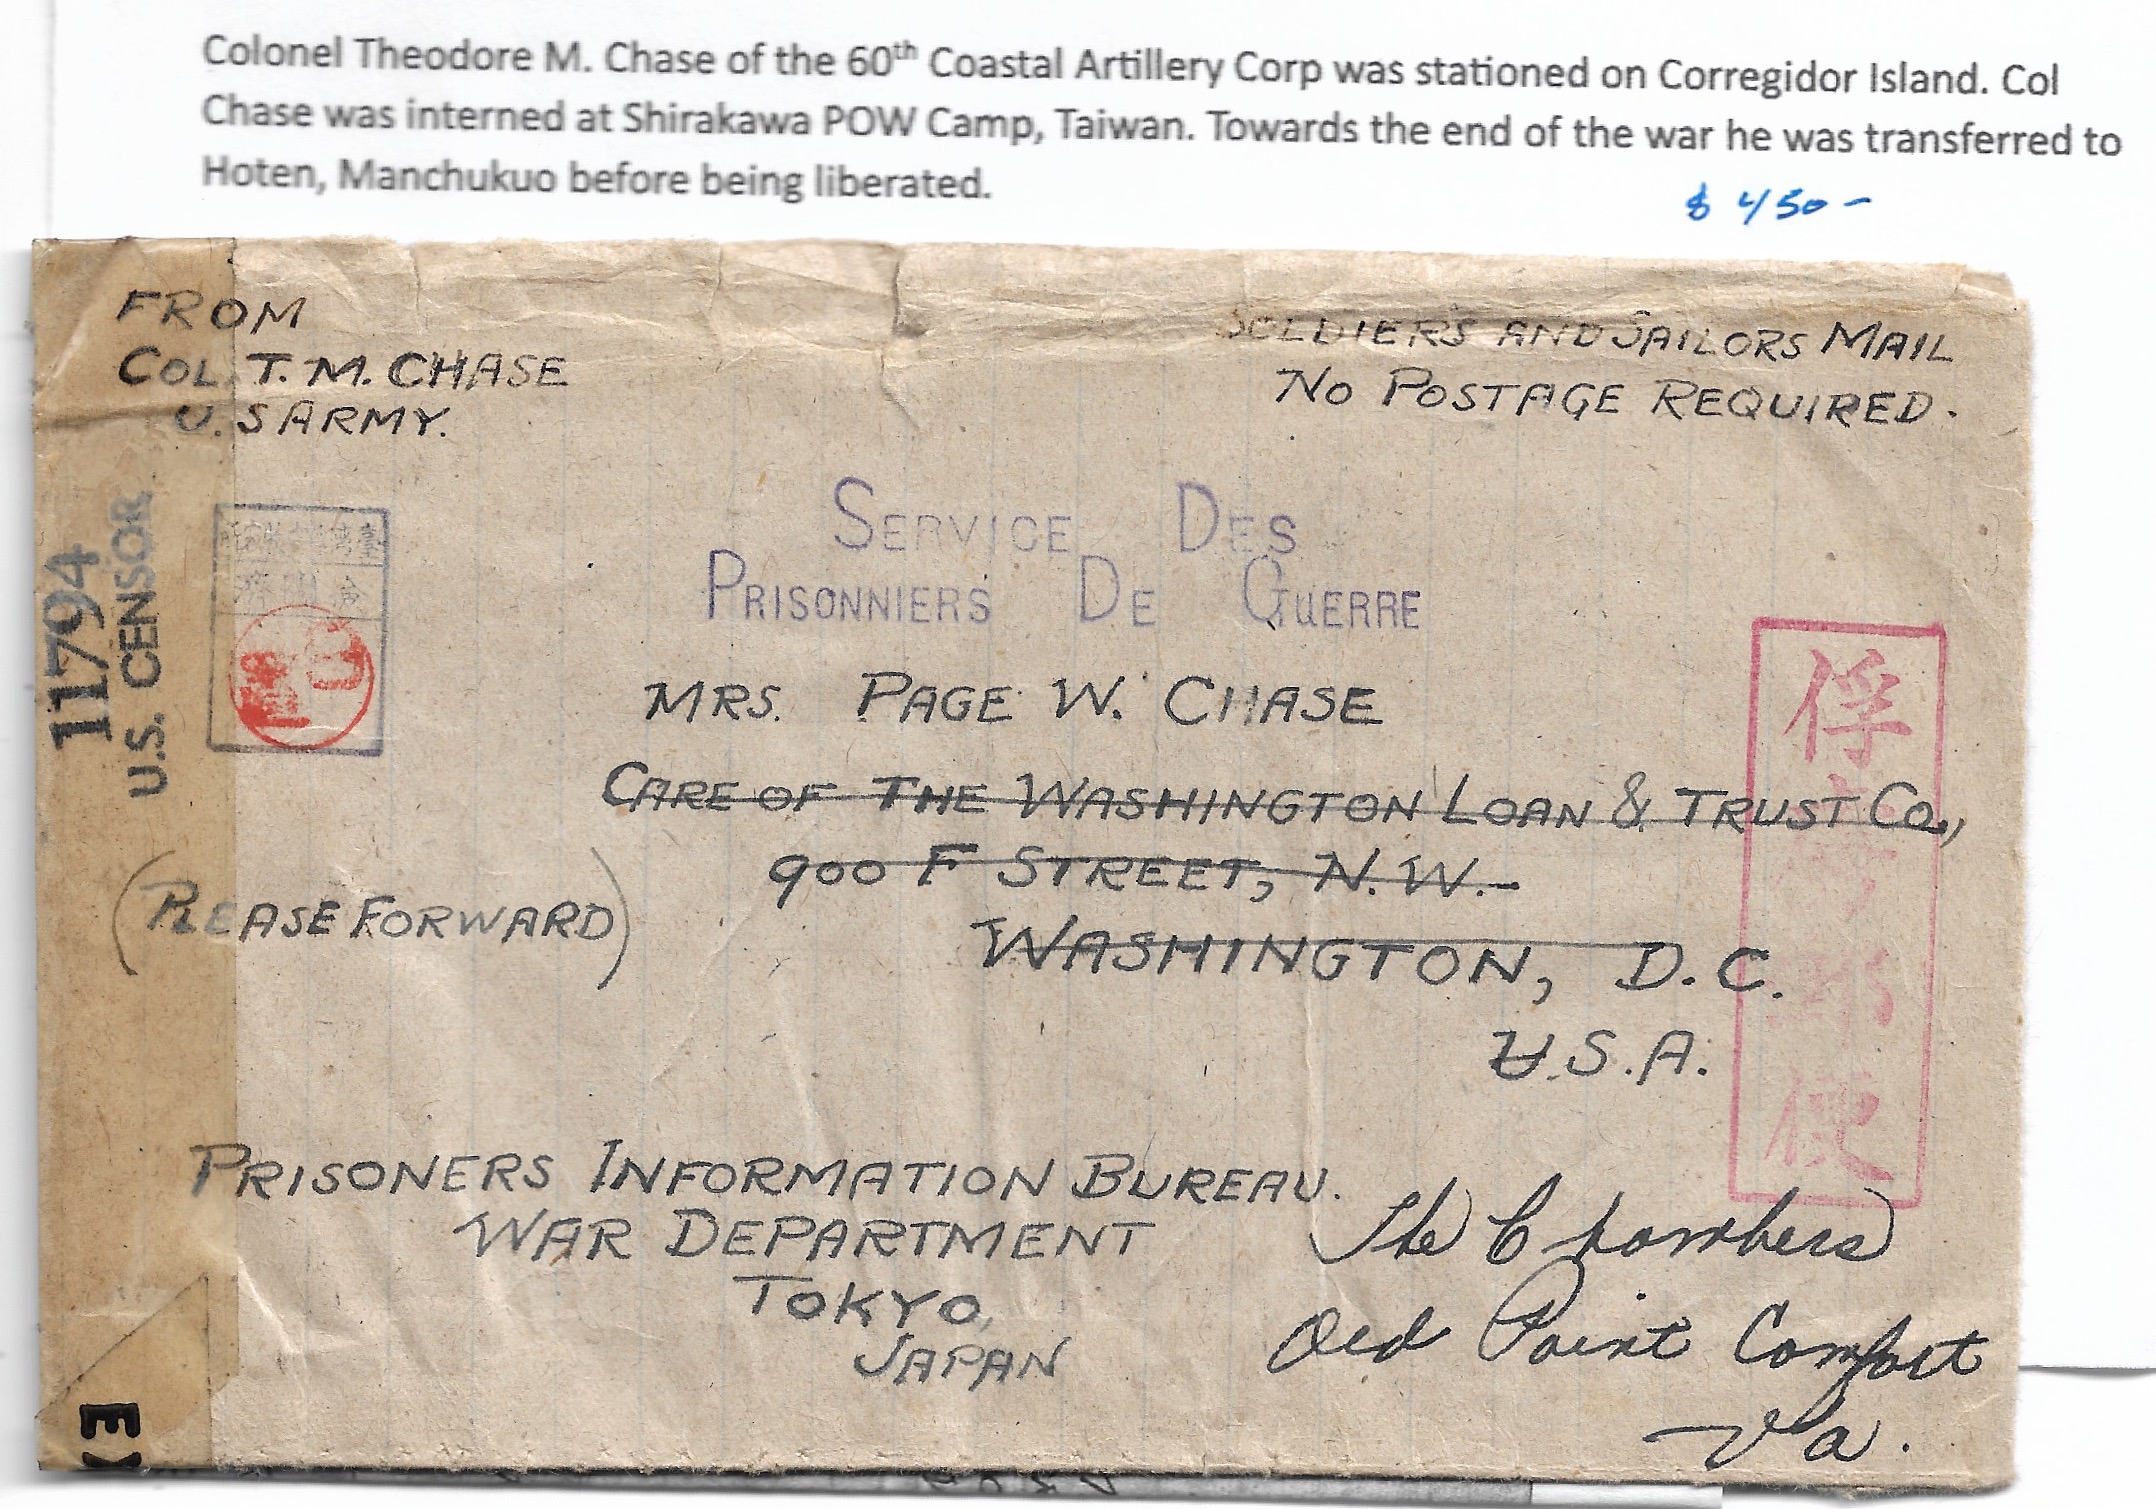 Colonel Theodore M. Chase of the 60th Coastal Artillery Corp was stationed on Corregidor Island. Col
Chase was interned at Shirakawa POW Camp, Taiwan. Towards the end of the war he was transferred to
Hoten, Manchukuo before being liberated.
$ 450-
FROM
COL. T. M. CHASE
U. S ARMY.
SOLDIER'S AND SAILORS MAIL
NO POSTAGE REQUIRED.
SERVICE DES
PRISONNIERS DE GUERRE
11794
U.S. CENSOR
MRS. PAGE W. CHASE
CARE OF THE WASHINGTON LOAN & TRUST CO.,
900 F STREET, N.W.-
WASHINGTON, D.C.
U.S.A.
(PLEASE FORWARD)
俘虜郵便
PRISONERS INFORMATION BUREAU.
WAR DEPARTMENT
TOKYO,
JAPAN
The Chambers
Old Point Comfort
Va.